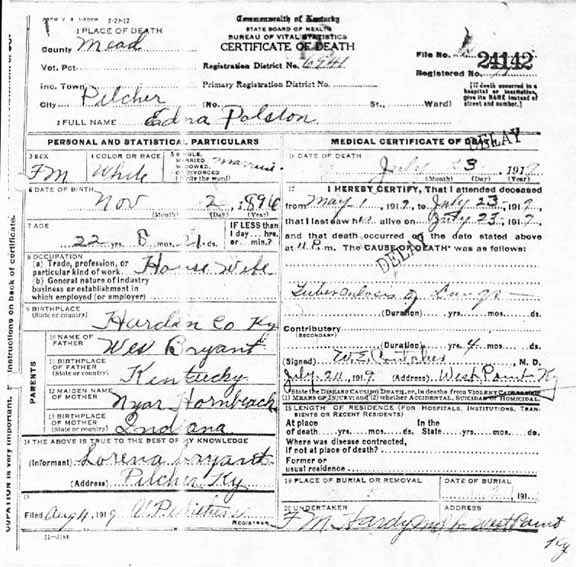 Commonwealth of Kentucky
STATE BOARD OF HEALTH
BUREAU OF VITAL STATISTICS
CERTIFICATE OF DEATH
1 PLACE OF DEATH
County Mead
Vot. Pct.
Registration District No. 6941
File No. 24142
Registered No.
Inc. Town
Primary Registration District No.
[If death occurred in a hospital or institution, give its NAME instead of street and number.]
City Pilcher (No. St., Ward)
2 FULL NAME Edna Polston
PERSONAL AND STATISTICAL PARTICULARS
3 SEX FM
4 COLOR OR RACE White
5 SINGLE, MARRIED, WIDOWED, OR DIVORCED (Write the word)
6 DATE OF BIRTH
Nov 2, 1896
(Month) (Day) (Year)
7 AGE
22 yrs. 8 mos. 21 ds.
IF LESS than 1 day hrs. or min.?
8 OCCUPATION
(a) Trade, profession, or particular kind of work House Wife
(b) General nature of industry business or establishment in which employed (or employer)
9 BIRTHPLACE (State or country)
Hardan Co Ky
PARENTS
10 NAME OF FATHER Wes Bryant
11 BIRTHPLACE OF FATHER (State or country) Kentucky
12 MAIDEN NAME OF MOTHER Hornback
13 BIRTHPLACE OF MOTHER (State or country) Indana
14 THE ABOVE IS TRUE TO THE BEST OF MY KNOWLEDGE
(Informant) Lorena Bryant
(Address) Pilcher Ky
15
Filed Aug 4, 1919
REGISTRAR
11-3184
MEDICAL CERTIFICATE OF DEATH
DELAY
16 DATE OF DEATH
July 23, 1919
(Month) (Day) (Year)
17 I HEREBY CERTIFY, That I attended deceased
from May 1, 1919, to July 23, 1919
that I last saw her alive on July 23, 1919
and that death occurred on the date stated above
at 11 P. m. The CAUSE OF DEATH* was as follows:
DELAY
Tuberculosis of Lungs
(Duration) yrs. mos. ds.
Contributory
(SECONDARY)
(Duration) yrs. 4 mos. ds.
(Signed) W.E. M. D.
July 24, 1919 (Address) West Point Ky
*State the DISEASE CAUSING DEATH, or, in deaths from VIOLENT CAUSES state (1) MEANS OF INJURY; and (2) whether ACCIDENTAL, SUICIDAL or HOMICIDAL.
18 LENGTH OF RESIDENCE (FOR HOSPITALS, INSTITUTIONS, TRANSIENTS OR RECENT RESIDENTS)
At place of death yrs. mos. ds. In the State yrs. mos. ds.
Where was disease contracted, if not at place of death?
Former or usual residence
19 PLACE OF BURIAL OR REMOVAL
DATE OF BURIAL
191
20 UNDERTAKER
ADDRESS
F M Hardy West Point
Ky